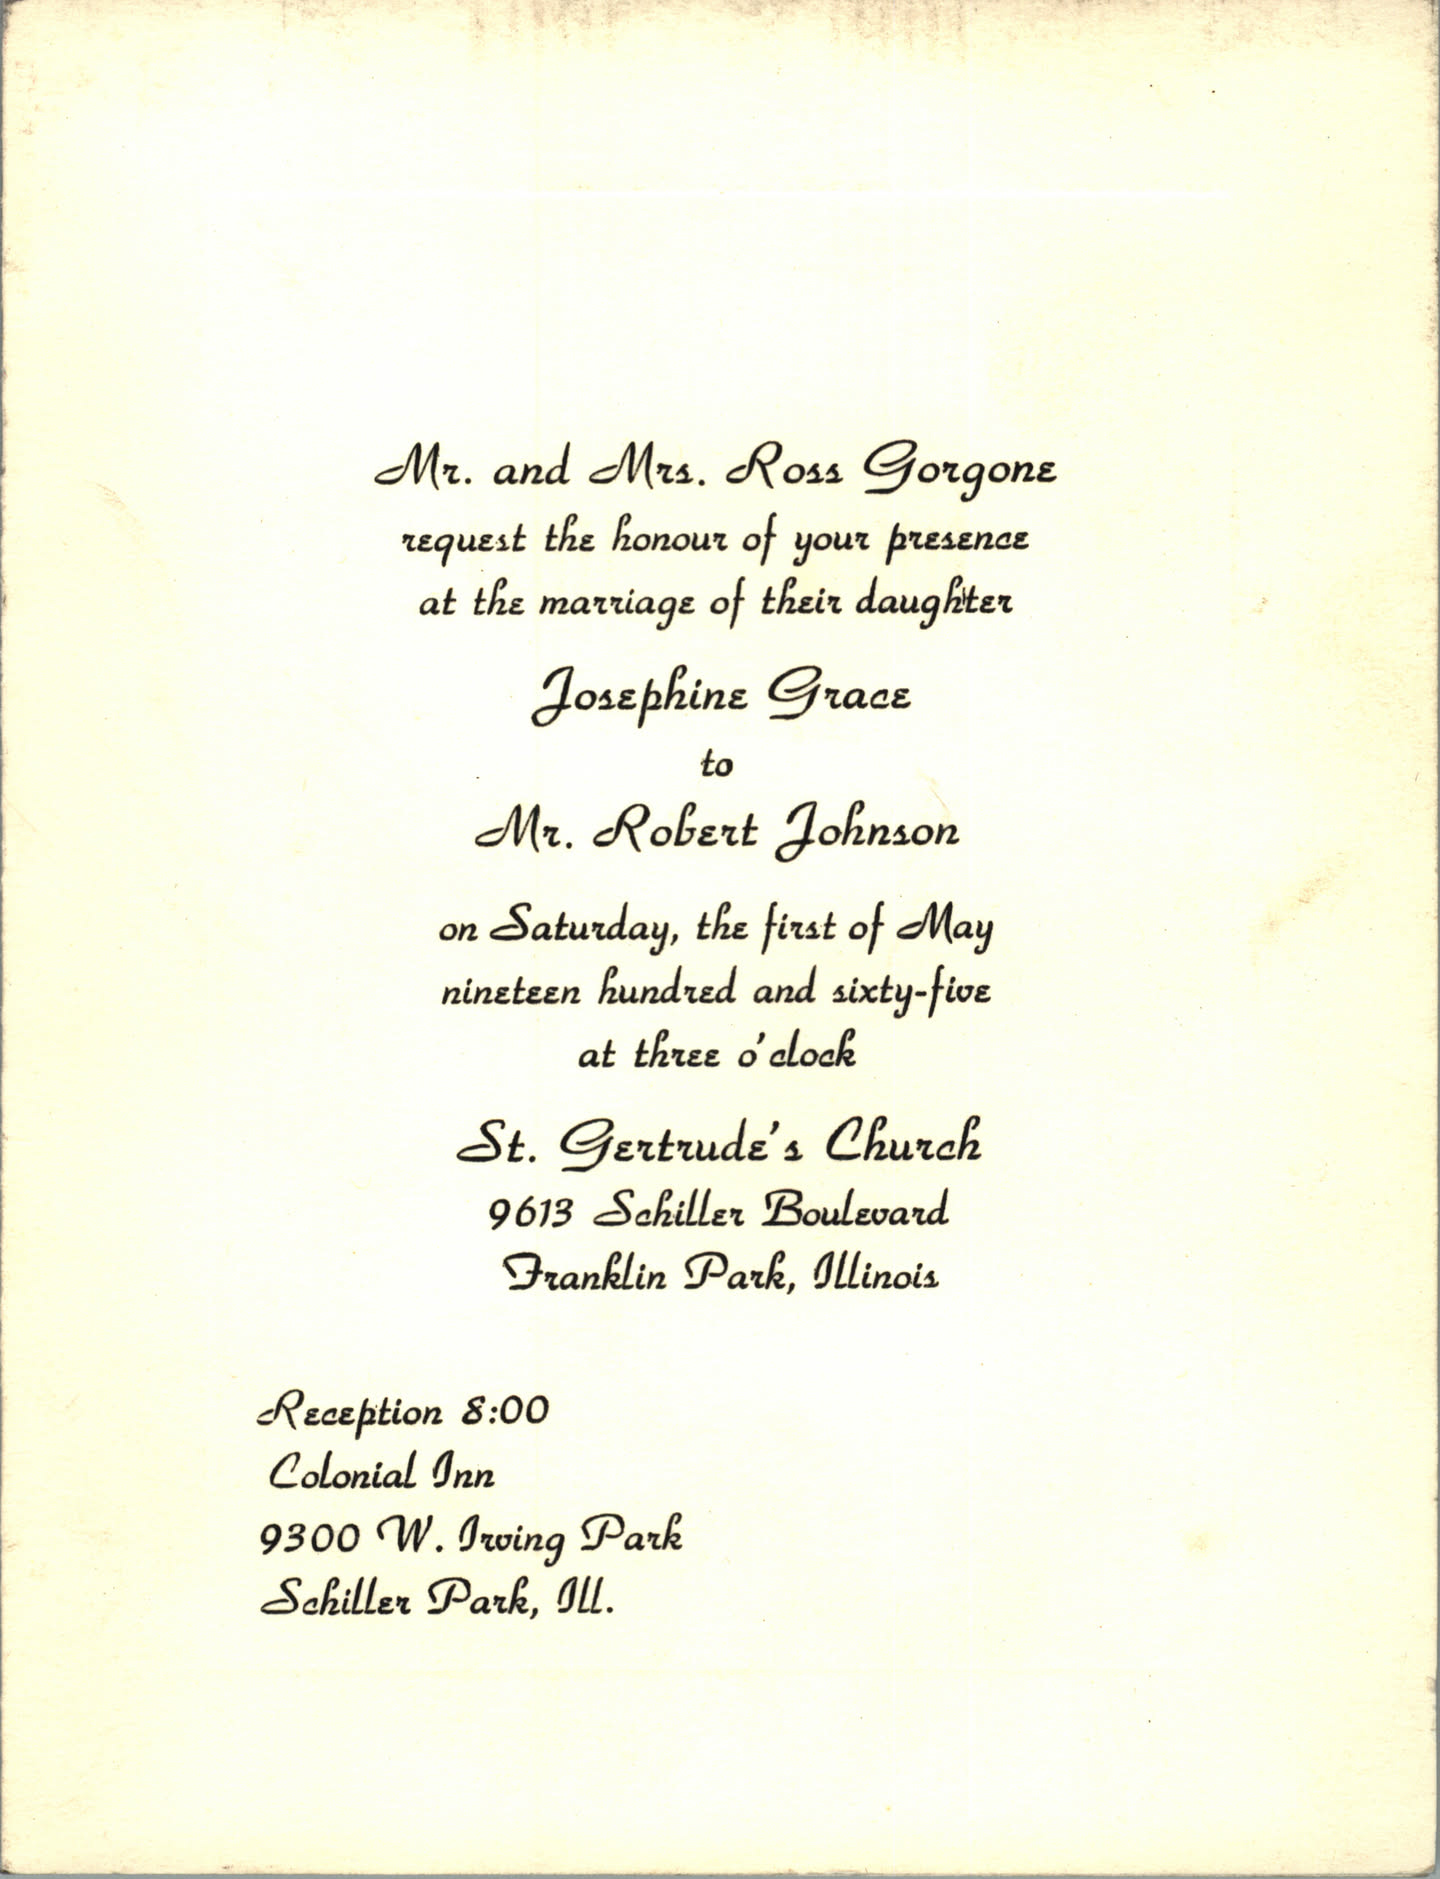 Mr. and Mrs. Ross Gorgone
request the honour of your presence
at the marriage of their daughter
Josephine Grace
to
Mr. Robert Johnson
on Saturday, the first of May
nineteen hundred and sixty-five
at three o'clock
St. Gertrude's Church
9613 Schiller Boulevard
Franklin Park, Illinois
Reception 8:00
Colonial Inn
9300 W. Irving Park
Schiller Park, Ill.